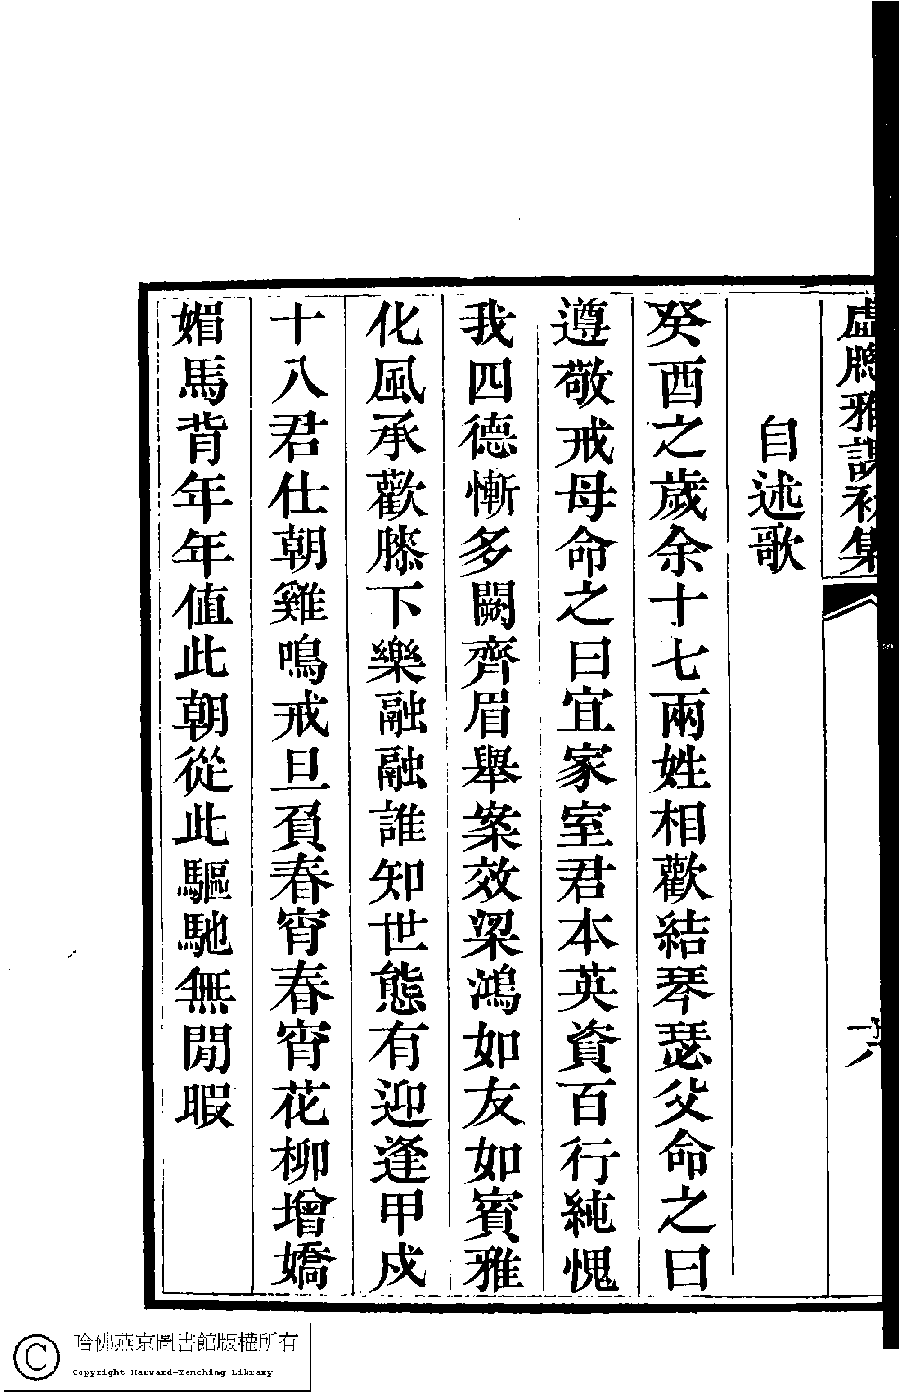 虛牕雅課初集
六
自述歌
癸酉之歲余十七兩姓相歡結琴瑟父命之曰
遵敬戒母命之曰宜家室君本英資百行純愧
我四德慚多闕齊眉舉案效梁鴻如友如賓雅
化風承歡膝下樂融融誰知世態有迎逢甲戍
十八君仕朝雞鳴戒旦負春宵春宵花柳增嬌
媚馬背年年值此朝從此驅馳無閒暇
哈佛燕京圖書館版權所有
Copyright Harvard-Yenching Library